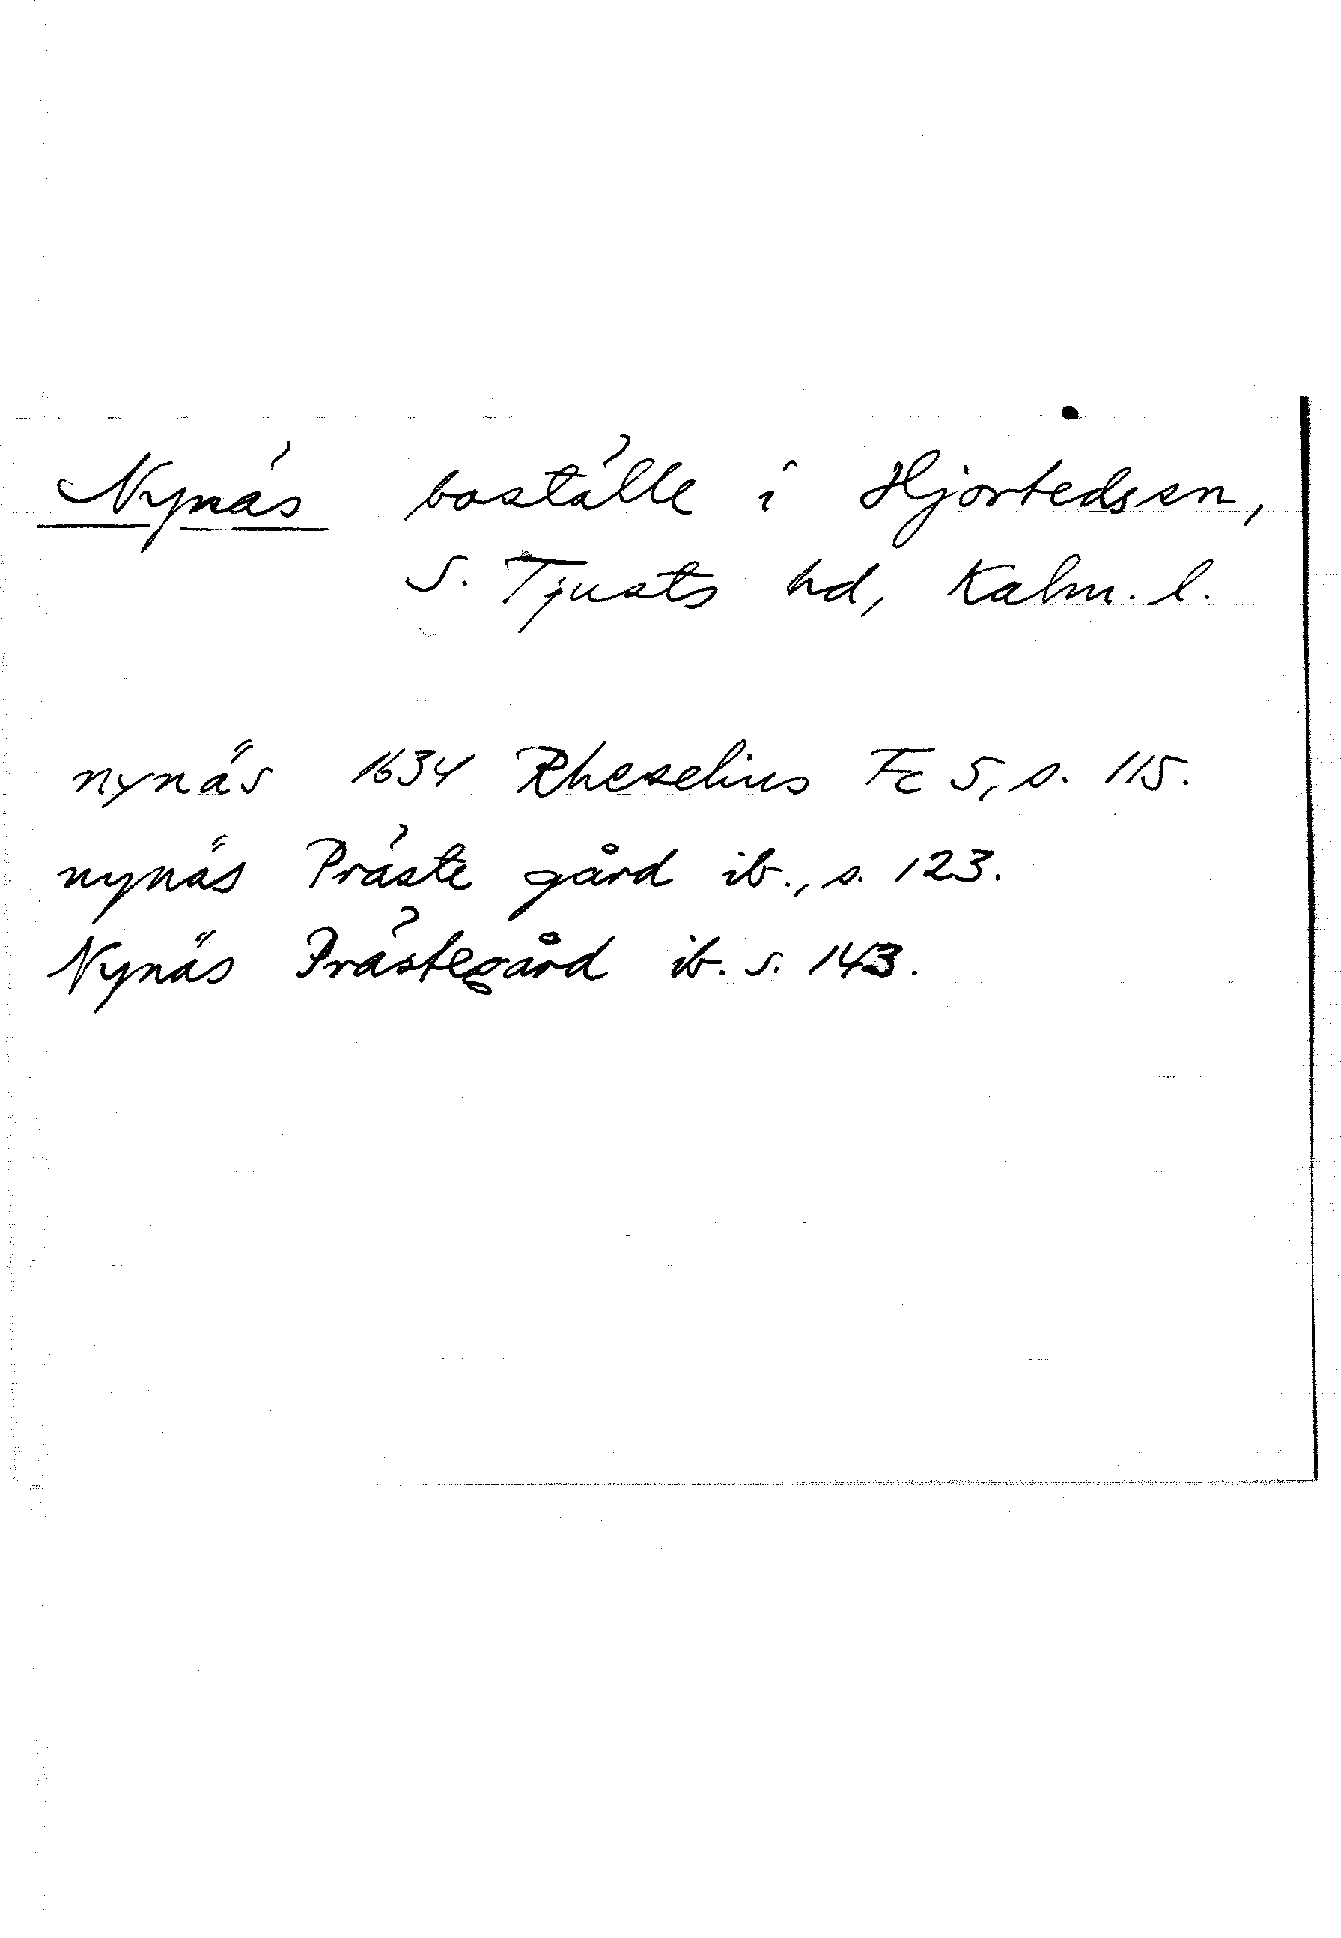 Nynäs boställe i Hjortedssn,
S. Tjusts hd, Kalm. l.
nynäs 1634 Rhezelius Fc 5, s. 115.
nynäs Präste gård ib., s. 123.
Nynäs Prästegård ib. s. 143.